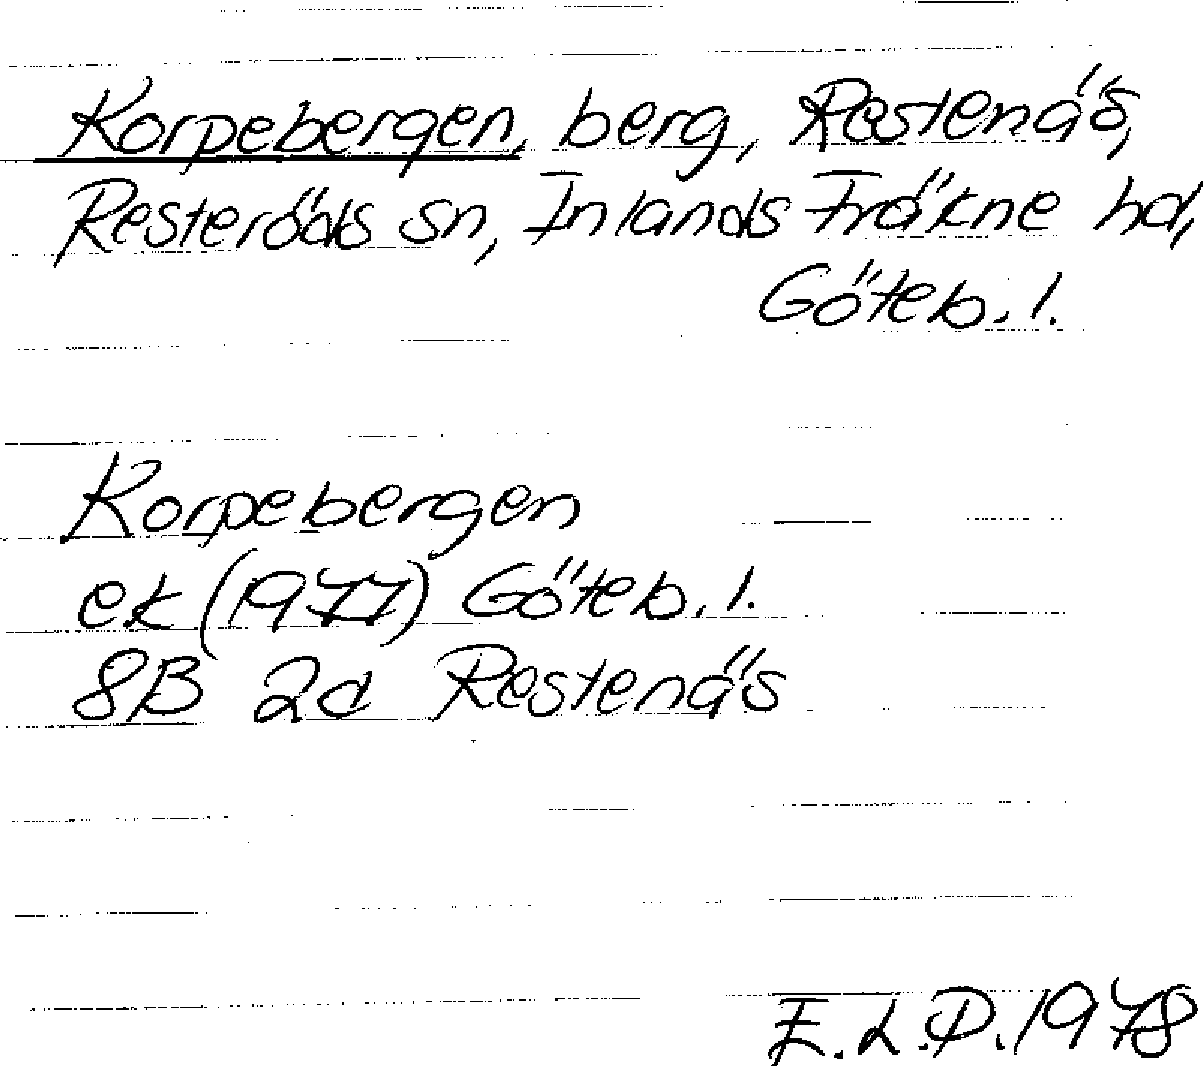 Korpebergen, berg, Restenäs,
Resteröds sn, Inlands Fräkne hd,
Göteb. l.
Korpebergen
ek (1977) Göteb. l.
8B 2d Restenäs
E.L.P. 1978